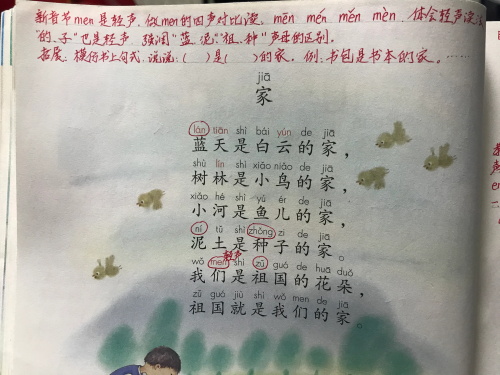 新音节men是轻声,做men的四声对比读,mēn mén měn mèn,体会轻声读法
"的、子"也是轻声 强调"蓝、泥""祖、种"声母的区别。
拓展、模仿书上句式,说说:( )是( )的家。例:书包是书本的家。……
jiā
家
lán tiān shì bái yún de jiā
蓝天是白云的家,
shù lín shì xiǎo niǎo de jiā
树林是小鸟的家,
xiǎo hé shì yú ér de jiā
小河是鱼儿的家,
ní tǔ shì zhǒng zi de jiā
泥土是种子的家。
轻声
wǒ men shì zǔ guó de huā duǒ
我们是祖国的花朵,
zǔ guó jiù shì wǒ men de jiā
祖国就是我们的家。